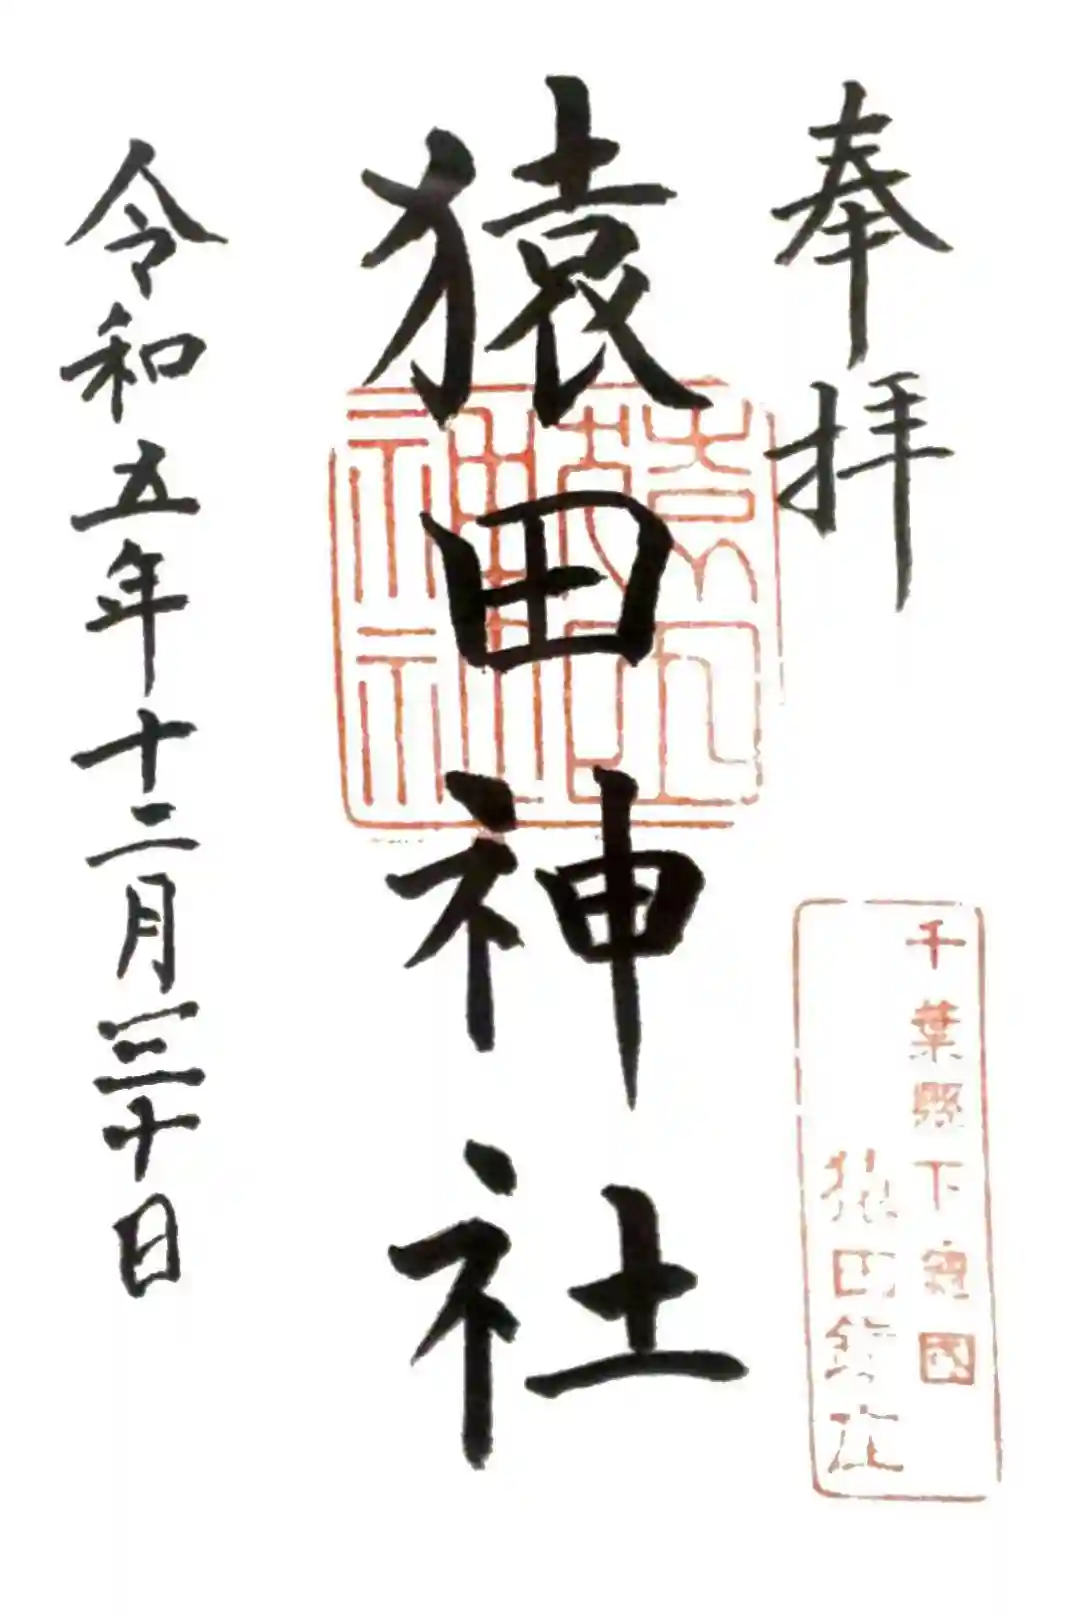 奉拝
千葉縣下總國
猿田鎮座
猿田神社
令和五年十二月三十日